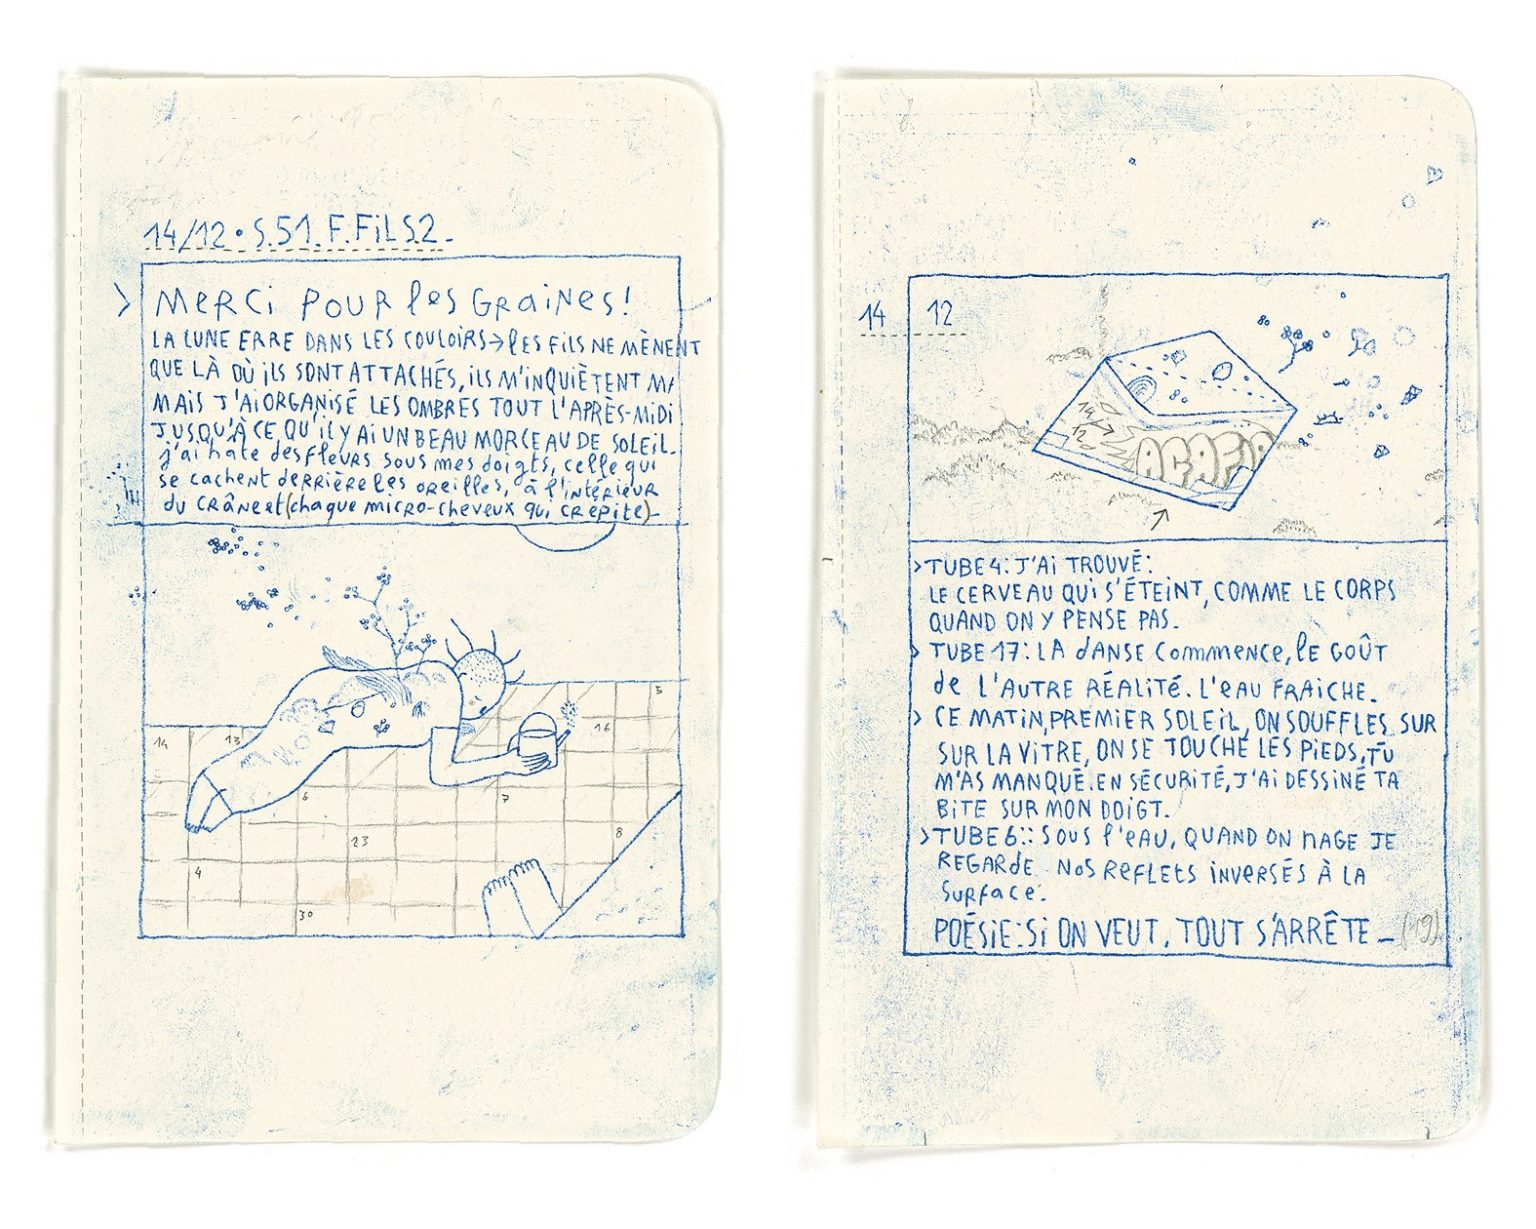 14/12 • S.51. F.FiLS2_
> MeRCi POUR les GRaiNes!
LA LUNE ERRE DANS LES COULOIRS→lES FiLS NE MÈNENT
QUE LÀ OÙ iLS SONT ATTACHÉS, iLS M'iNQUiÈTENT M/
MAiS J'Ai ORGANiSÉ LES OMBRES TOUT L'APRÈS-MiDi
JUSQU'À CE QU'iL Y Ai UN BEAU MORCEAU DE SOLEiL.
J'ai hate des fleurs sous mes doigts, celle qui
se cachent derrière les oreilles, à l'intérieur
du crâne et (chaque micro-cheveux qui crépite)_
14 13 5
16
6 7
23 8
4
30
14 12
14
12
ACAFiR
>TUBE 4: J'Ai TROUVÉ:
LE CERVEAU QUi S'ÉTEiNT, COMME LE CORPS
QUAND ON Y PENSE PAS.
> TUBE 17: LA dANSE COMMENCE, lE GOÛT
de L'AUTRE RÉALiTÉ. L'eAU FRAiCHE.
> CE MATiN, PREMiER SOLEiL, ON SOUFFLES SUR
SUR LA ViTRE, ON SE TOUCHE LES PiEDS, TU
M'AS MANQUÉ. EN SÉCURiTÉ, J'Ai DESSiNÉ TA
BiTE SUR MON DOiGT.
>TUBE 6:: SOUS l'eAU, QUAND ON NAGE JE
REGARde NOS REFLETS iNVERSÉS À LA
SURFACE.
POÉSiE: Si ON VEUT, TOUT S'ARRÊTE _ (19)